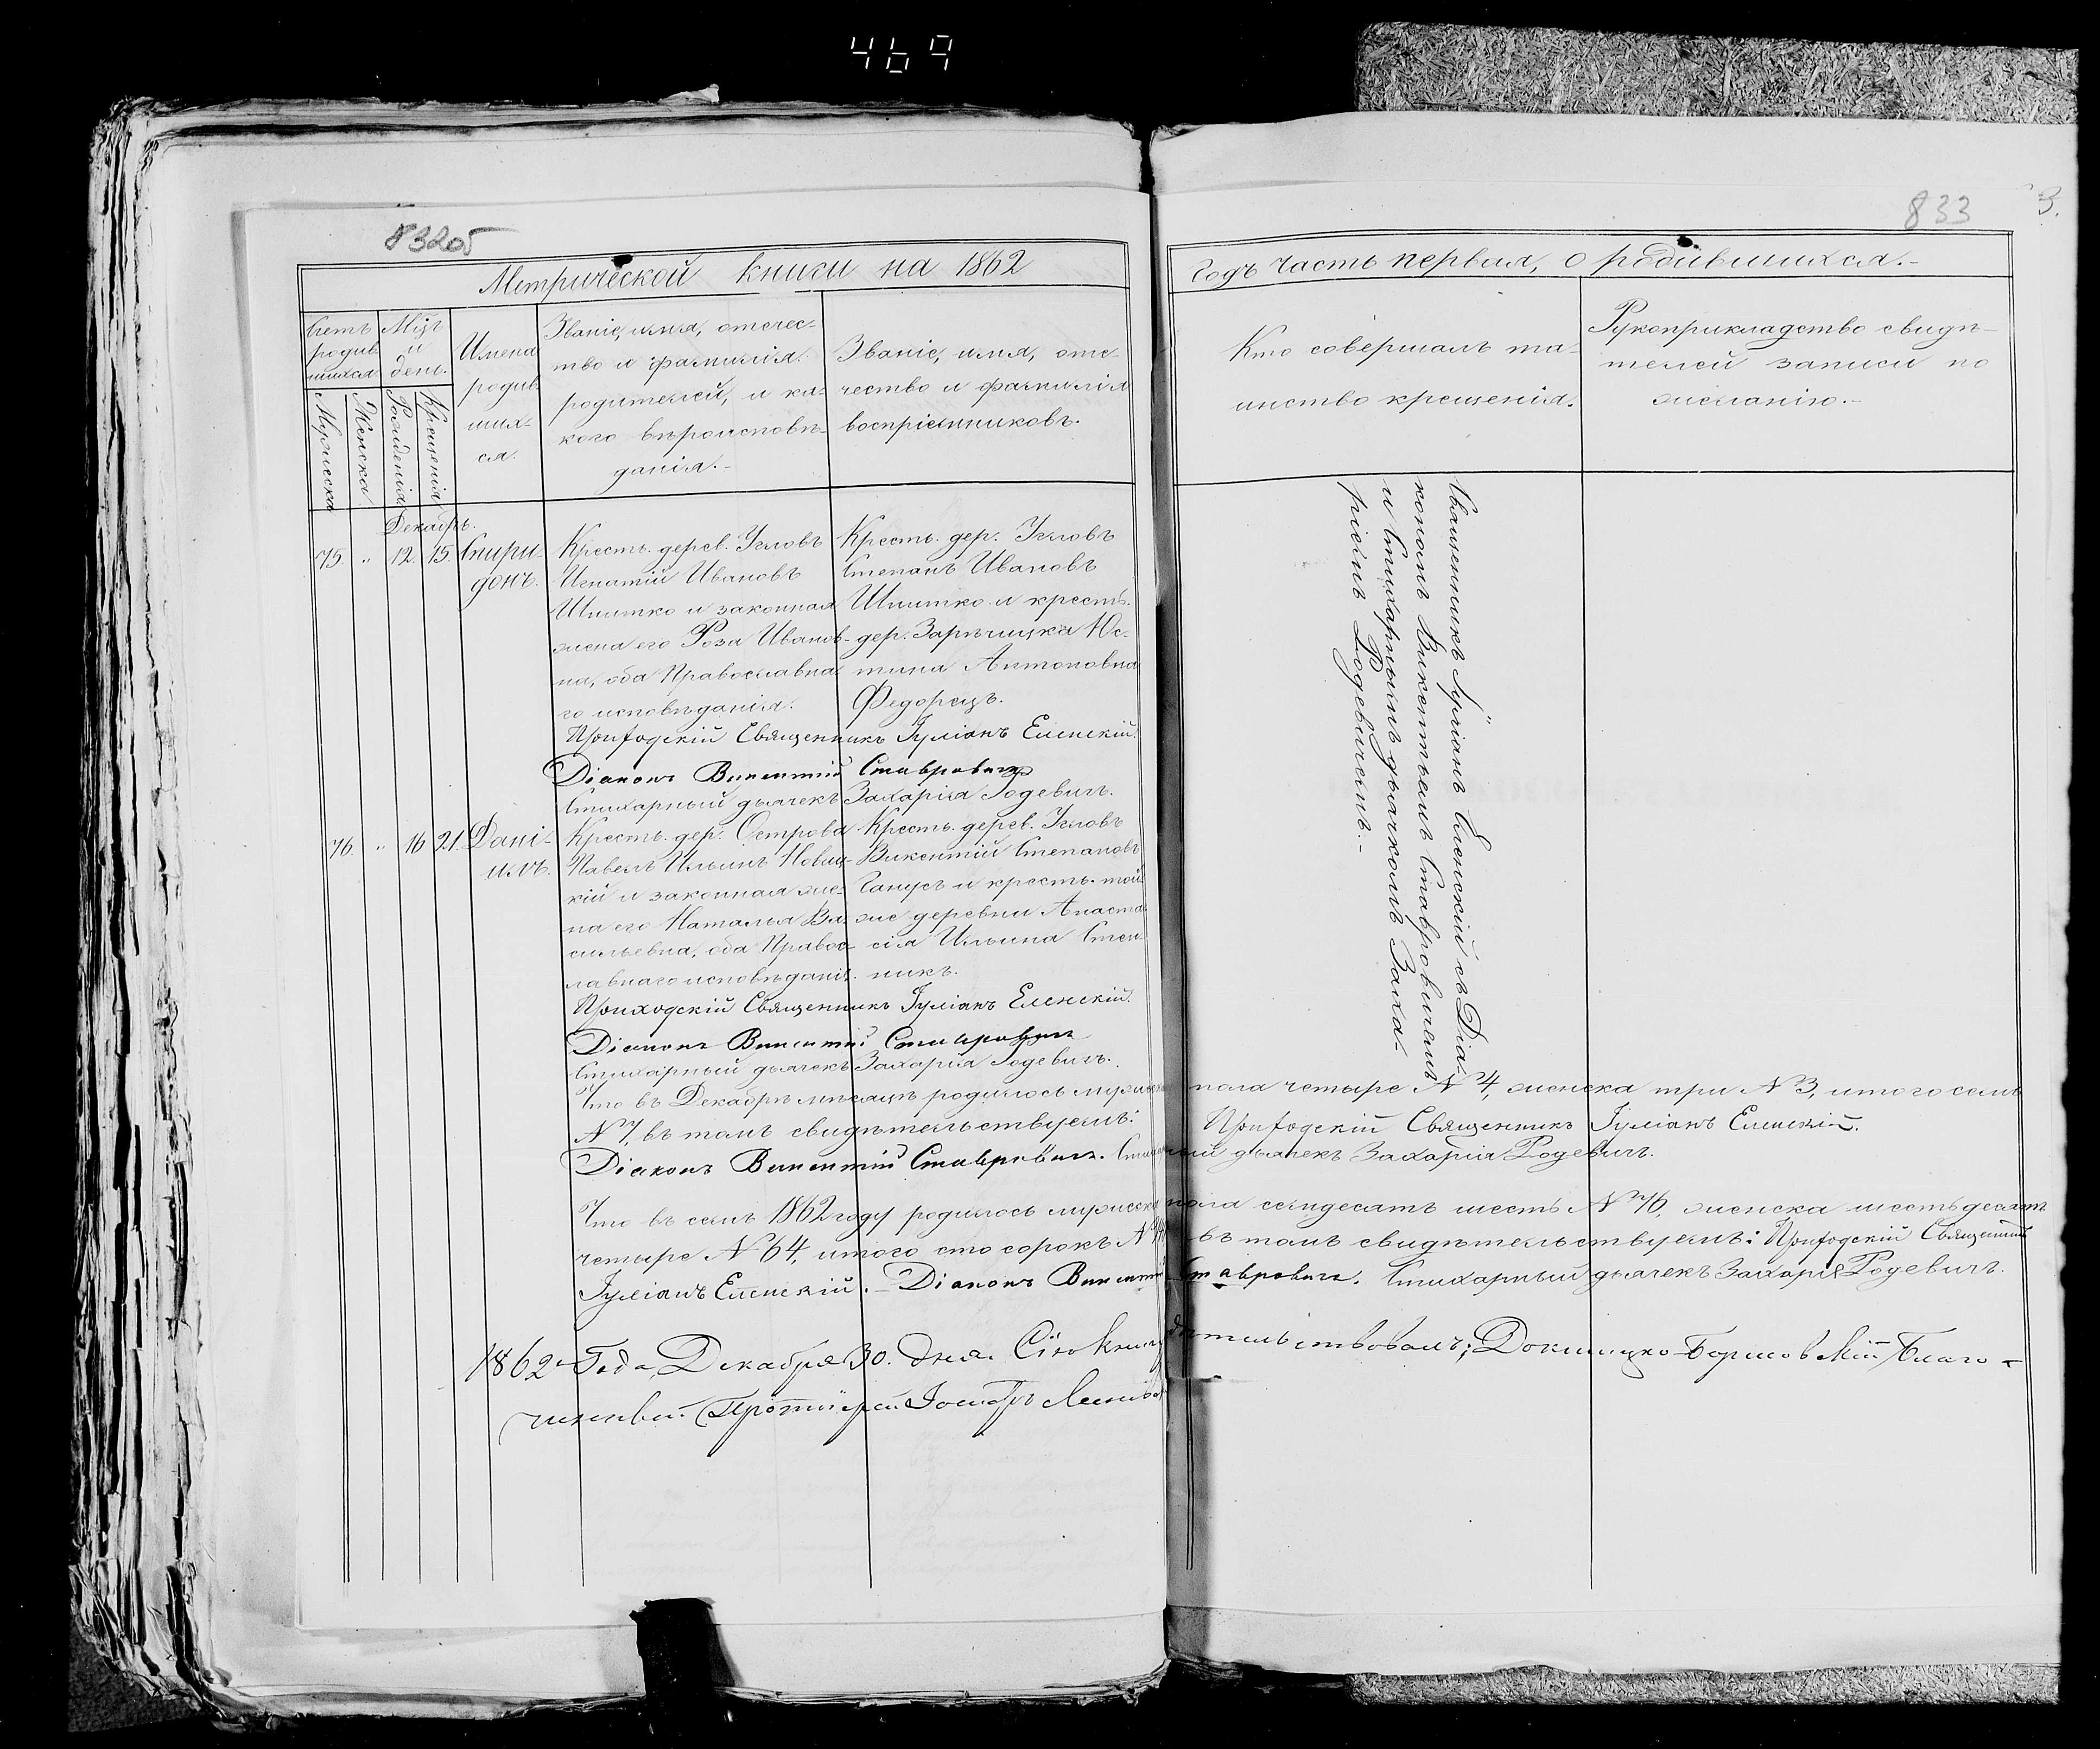 469
832об
833
3.
Метрической книги на 1862
годъ часть первая, о родившихся.
Счетъ родившихся
Мужеска
Женска
Мѣцъ и день.
Рожденія
Крещенія
Имена
родив
ших-
ся.
Званіе, имя, отчес-
тво и фамилія
родителей, и ка-
кого вѣроисповѣ-
данія.
Званіе, имя, оте-
чество и фамилія
воспріемниковъ.
Кто совершалъ та-
инство крещенія.
Рукоприкладство свидѣ-
телей записи по
желанію.
Декабрь.
75. " 12. 15. Спири-
донъ.
Кресть. дерев. Угловъ
Игнатій Ивановъ
Шпитко и законная
жена его Роза Иванов-
на, оба Православна-
го исповѣданія.
Кресть. дер. Угловъ
Степанъ Ивановъ
Шпитко и кресть.
дер. Зарѣчицка Юс-
тина Антоновна
Федорецъ.
Приходскій Священникъ Іуліанъ Еленскій.
Діаконъ Викентій Ставровичъ
Стихарный дьячекъ Захарія Родевичъ.
76. " 16 21 Дані-
илъ.
Кресть. дер. Острова
Павелъ Ильинъ Новиц-
кій и законная же-
на его Наталья Ва-
сильевна, оба Правос-
лавнаго исповѣданія.
Кресть. дерев. Угловъ
Викентій Степановъ
Ганусъ и кресть. той
же деревни Анаста-
сія Ильина Стен-
никъ.
Приходскій Священникъ Іуліанъ Еленскій.
Діаконъ Викентій Ставровичъ
Стихарный дьячекъ Захарія Родевичъ.
Священникъ Іуліанъ Еленскій съ Діа-
кономъ Викентіемъ Ставровичемъ
и Стихарнымъ дьячкомъ Заха-
ріемъ Родевичемъ.
Что въ Декабрѣ мѣсяцѣ родилось мужеска пола четыре N 4, женска три N 3, итого семь
N 7, въ томъ свидѣтельствуемъ: Приходскій Священникъ Іуліанъ Еленскій.
Діаконъ Викентій Ставровичъ. Стихарный дьячекъ Захарія Родевичъ.
Что въ семъ 1862 году родилось мужеска пола семдесятъ шесть N 76, женска шестьдесятъ
четыре N 64, итого сто сорокъ N 140 въ томъ свидѣтельствуемъ: Приходскій Священникъ
Іуліанъ Еленскій. Діаконъ Викентій Ставровичъ. Стихарный дьячекъ Захарія Родевичъ.
1862 Года, Декабря 30. дня. Сію Книгу Докшицко-Борисовскій Благо-
чинный Протоіерей Іосифъ